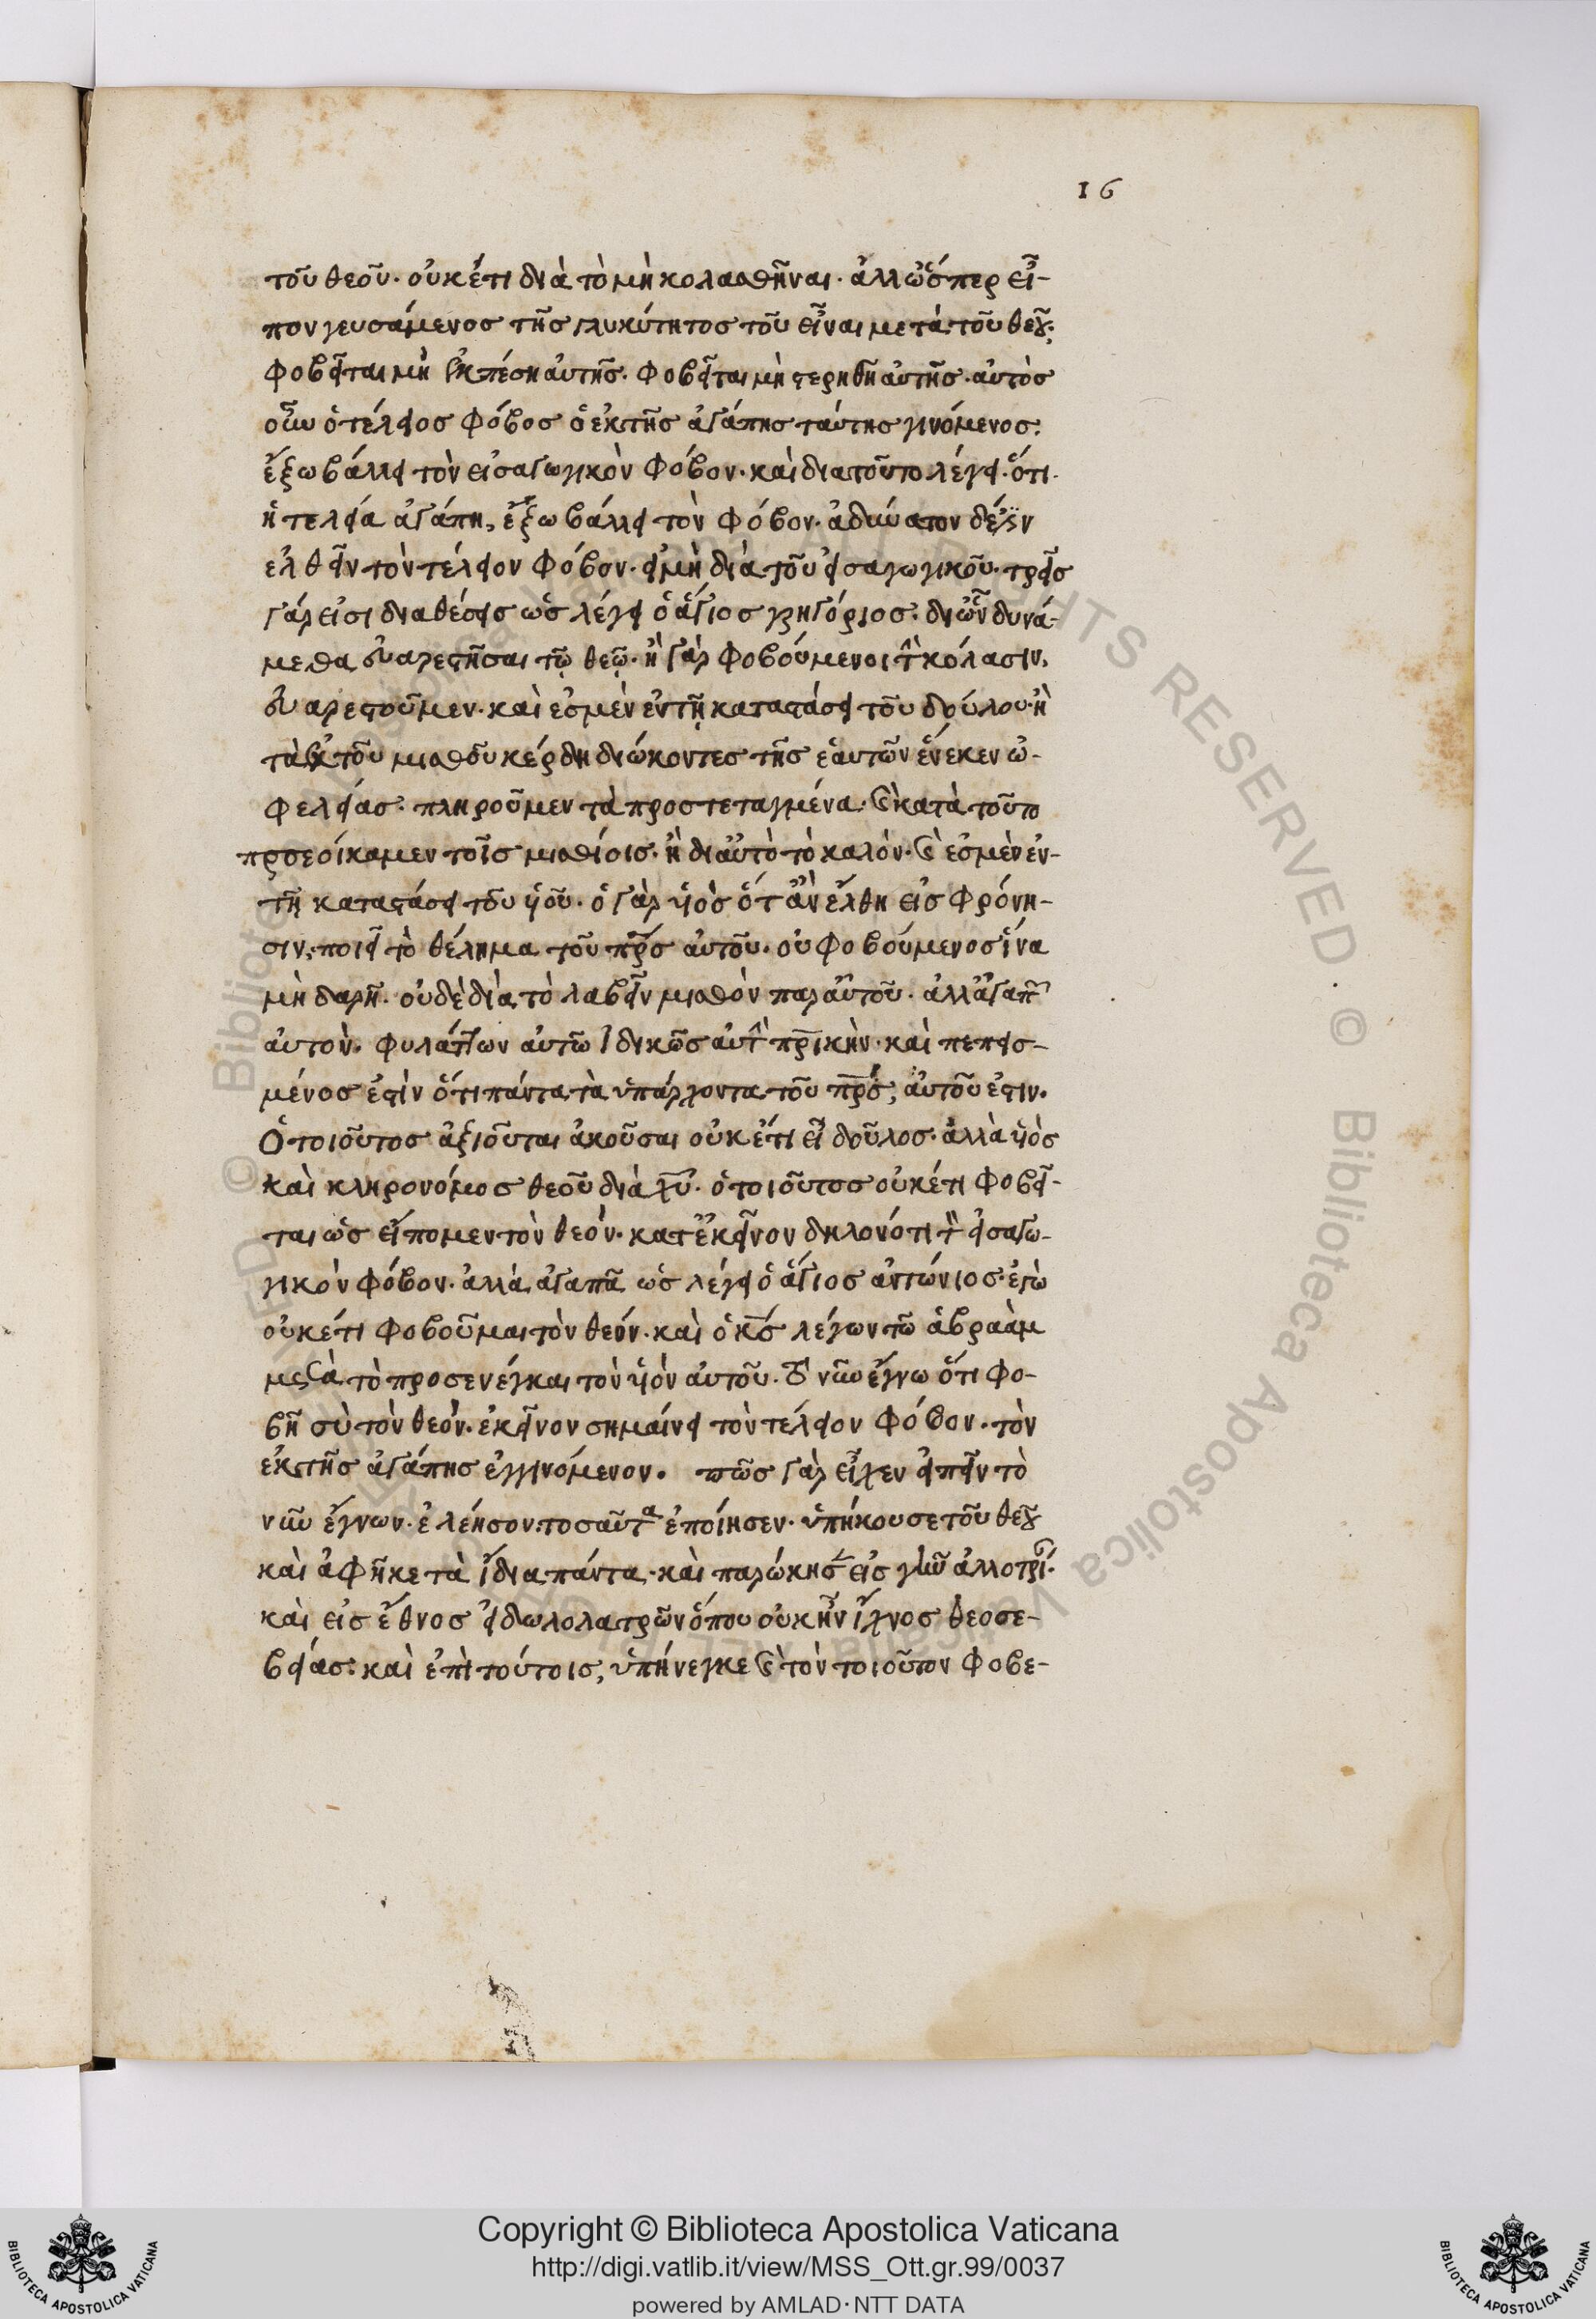 16
τοῦ θεοῦ· οὐκέτι διὰ τὸ μὴ κολασθῆναι· ἀλλ ὥσπερ εἶ-
πον γευσάμενος τῆς γλυκύτητος τοῦ εἶναι μετὰ τοῦ θεοῦ·
φοβεῖται μὴ ἐκπέση αὐτῆς· φοβεῖται μὴ στερηθῆ αὐτῆς· αὐτὸς
οὖν ὁ τέλειος φόβος ὁ ἐκ τῆς ἀγάπης ταύτης γινόμενος·
ἔξω βάλλει τὸν εἰσαγωγικὸν φόβον· καὶ διατοῦτο λέγει· ὅτι
ἡ τελεία ἀγάπη, ἔξω βάλλει τὸν φόβον· ἀδύνατον δέ ἐστιν
ελθεῖν τὸν τέλειον φόβον· εἰμὴ διὰ τοῦ εἰσαγωγικοῦ· τρεῖς
γάρ εἰσι διαθέσεις ὡς λέγει ὁ ἅγιος γρηγόριος· δι ὧν δυνά-
μεθα εὐαρεστῆσαι τῶ θεῶ· ἢ γὰρ φοβούμενοι τὴν κόλασιν,
εὐαρεστοῦμεν· καὶ ἐσμὲν ἐν τῆ καταστάσει τοῦ δούλου· ἢ
τὰ ἐκ τοῦ μισθοῦ κέρδη διώκοντες τῆς ἑαυτῶν ἕνεκεν ὠ-
φελείας· πληροῦμεν τὰ προστεταγμένα· καὶ κατὰ τοῦτο
προσεοίκαμεν τοῖς μισθίοις· ἢ δι αὐτὸ τὸ καλὸν· καὶ ἐσμὲν ἐν-
τῆ καταστάσει τοῦ υἱοῦ· ὁ γὰρ υἱὸς ὅτ ἂν ἔλθη εἰς φρόνη-
σιν, ποιεῖ τὸ θέλημα τοῦ πρς αὐτοῦ· οὐ φοβούμενος ἵνα
μὴ δαρῆ· οὐδὲ διὰ τὸ λαβεῖν μισθὸν παρ αὐτοῦ· ἀλλ ἀγαπῶν
αὐτὸν· φυλάττων αὐτῶ ἰδικῶς αὐτὴν πρικὴν· καὶ πεπεισ-
μένος ἐστὶν ὅτι πάντα τὰ ὑπάρχοντα τοῦ πρς, αὐτοῦ ἐστιν·
Ὁ τοιοῦτος ἀξιοῦται ἀκοῦσαι οὐκ ἔτι εἶ δοῦλος· ἀλλὰ υἱὸς
καὶ κληρονόμος θεοῦ διὰ χυ· ὁ τοιοῦτος οὐκέτι φοβεῖ-
ται ὡς εἴπομεν τὸν θεόν· κατ ἐκεῖνον δηλονότι τὸν εἰσαγω-
γικὸν φόβον· ἀλλὰ ἀγαπᾶ ὡς λέγει ὁ ἅγιος ἀντώνιος· ἐγὼ
οὐκέτι φοβοῦμαι τὸν θεόν· καὶ ὁ κς λέγων τῶ ἀβραὰμ
μετὰ τὸ προσενέγκαι τὸν υἱὸν αὐτοῦ· ὅτι νῦν ἔγνω ὅτι φο-
βῆ σὺ τὸν θεόν· ἐκεῖνον σημαίνει τὸν τέλειον φόβον· τὸν
ἐκ τῆς ἀγάπης ἐγγινόμενον· πῶς γὰρ εἶχεν εἰπεῖν τὸ
νῦν ἔγνων· ἐλέησον· τοσαῦτα ἐποίησεν· ὑπήκουσε τοῦ θεοῦ
καὶ ἀφῆκε τὰ ἴδια πάντα· καὶ παρώκησεν εἰς γῆν ἀλλοτρίαν·
καὶ εἰς ἔθνος εἰδωλολατρῶν ὅπου οὐκ ἦν ἴχνος θεοσε-
βείας· καὶ ἐπὶ τούτοις, ὑπήνεγκε καὶ τὸν τοιοῦτον φοβε-
© Biblioteca Apostolica Vaticana
ALL RIGHTS RESERVED
Copyright © Biblioteca Apostolica Vaticana
http://digi.vatlib.it/view/MSS_Ott.gr.99/0037
powered by AMLAD · NTT DATA
BIBLIOTECA APOSTOLICA VATICANA
BIBLIOTECA APOSTOLICA VATICANA